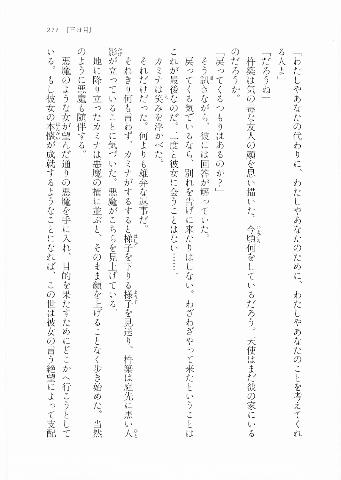 211　「三日月」
「わたしやあなたの代わりに、わたしやあなたのために、わたしやあなたのことを考えてくれ
る人よ」
「だろうね」
　杵築は気の毒な友人の顔を思い描いた。今頃何をしているだろう。天使はまだ彼の家にいる
のだろうか。
「戻ってくるつもりはあるのか？」
　そう訊きながら、彼には回答が解っていた。
　戻ってくる気でいるなら、別れを告げに来たりはしない。わざわざやって来たということは
これが最後なのだ。二度と彼女に会うことはない……。
　カミナは笑みを浮かべた。
　それだけだった。何よりも雄弁な返事だ。
　それきり何も言わず、カミナがするすると梯子を下りる様子を見送り、杵築は庭先に黒い人
影が立っていることに気づいた。悪魔がこちらを見上げている。
　地に降り立ったカミナは悪魔の横に並ぶと、そのまま顔を上げることなく歩き始めた。当然
のように悪魔も随伴する。
　悪魔のような女が望んだ通りの悪魔を手に入れ、目的を果たすためにどこかへ行こうとして
いる。もし彼女の本懐が成就するようなことになれば、この世は彼女の言う絶望によって支配